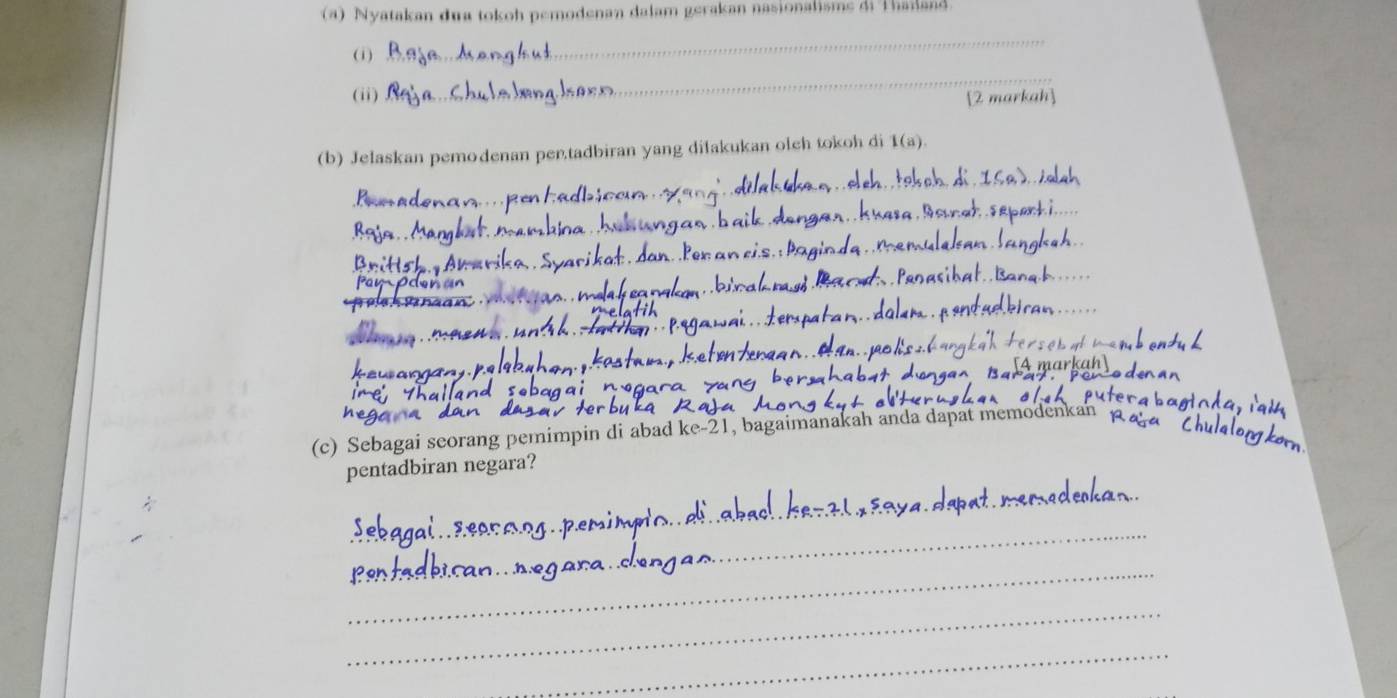 (a) Nyatakan dua tokoh pemodenan dalam gerakan nasionalisme di Thailand.
(i) Raja Mongkut
(ii) Raja Chulalongkorn
[2 markah]
(b) Jelaskan pemodenan pentadbiran yang dilakukan oleh tokoh di 1(a).
Pemodenan pentadbiran yang dilakukan oleh tokoh di 1(a) ialah
Raja Mongkut membina hubungan baik dengan kuasa Barat seperti
British, Amerika Syarikat dan Perancis. Baginda memulakan langkah
pempdenan melaksanakan birokrasi Penasihat Barat
masuk untuk melatih pegawai tempatan dalam pentadbiran
kewangan, pelabuhan, kastam, ketenteraan dan polis. Langkah tersebut membentuk
[4 markah]
imej Thailand sebagai negara yang bersahabat dengan Barat. Pemodenan
negara dan dasar terbuka Raja Mongkut diteruskan oleh puterabaginda, iaitu
Raja Chulalongkorn.
(c) Sebagai seorang pemimpin di abad ke-21, bagaimanakah anda dapat memodenkan
pentadbiran negara?
Sebagai seorang pemimpin di abad ke-21, saya dapat memodenkan
pentadbiran negara dengan